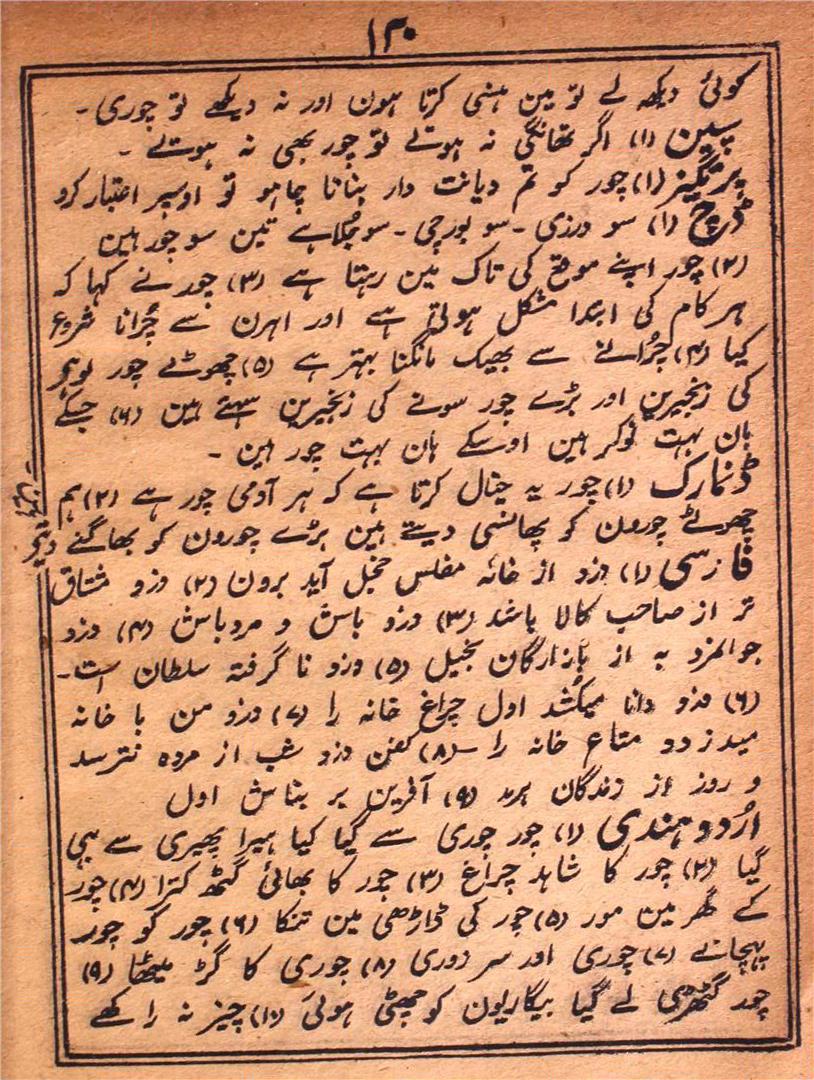 ۱۳۰
کوئی دیکھ لے تو مین ہنسی کرتا ہون اور نہ دیکھے تو چوری۔
سپین (۱) اگر تھانگی نہ ہوتے تو چور بھی نہ ہوتے۔
پرتگیز (۱) چور کو تم دیانت دار بنانا چاہو تو اوسپر اعتبار کرو
ڈچ (۱) سو درزی۔ سو بورچی۔ سو جُلاہے تین سو چور ہین
(۲) چور اپنے موقع کی تاک مین رہتا ہے (۳) چور نے کہا کہ
ہر کام کی ابتدا مشکل ہوتی ہے اور اہرن سے چُرانا شروع
کیا (۴) چُرانے سے بھیک مانگنا بہتر ہے (۵) چھوٹے چور لوہر
کی زنجیرین اور بڑے چور سونے کی زنجیرین پہنتے ہین (۶) جسکے
ہان بہت نوکر ہین اوسکے ہان بہت چور ہین۔
ڈنمارک (۱) چور یہ خیال کرتا ہے کہ ہر آدمی چور ہے (۲) ہم
چھوٹے چورون کو پھانسی دیتے ہین بڑے چورون کو بھاگنے دیتے
ہین۔
فارسی (۱) دزد از خانہ مفلس خجل آید برون (۲) دزد مشتاق
تر از صاحب کالا باشد (۳) دزد باش و مرد باش (۴) دزد
جوانمرد بہ از بازارگان بخیل (۵) دزد نا گرفتہ سلطان است۔
(۶) دزد دانا میکُشد اول چراغ خانہ را (۷) دزد من با خانہ
میدزدد متاع خانہ را۔ (۸) کفن دزد شب از مردہ نترسد
و روز از زندگان ہرمد (۹) آفرین بر بناش اول
اُردو ہندی (۱) چور چوری سے گیا کیا ہیرا پھیری سے بھی
گیا (۲) چور کا شاہد چراغ (۳) چور کا بھائی گٹھ کترا (۴) چور
کے گھر مین مور (۵) چور کی ڈاڑھی مین تنکا (۶) چور کو چور
پہچانے (۷) چوری اور سر زوری (۸) چوری کا گڑ میٹھا (۹)
چور گٹھڑی لے گیا بیگاریون کو چھٹی ہوئی (۱۰) چیز نہ راکھے